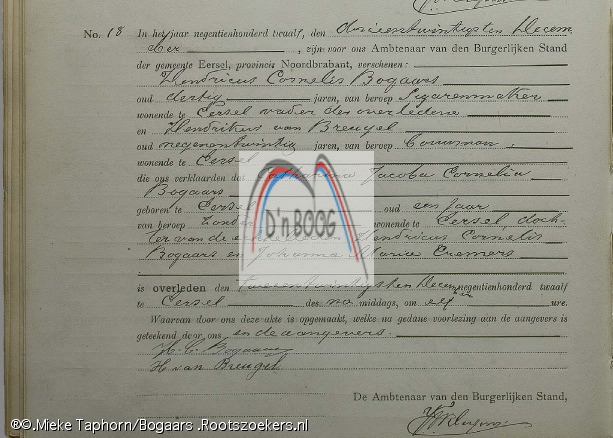 No. 18 In het jaar negentienhonderd twaalf, den drieentwintigsten Decem
ber, zijn voor ons Ambtenaar van den Burgerlijken Stand
der gemeente Eersel, provincie Noordbrabant, verschenen:
Hendricus Cornelis Bogaars
oud dertig jaren, van beroep Sigarenmaker
wonende te Eersel vader des overledene
en Hendrikus van Breugel
oud negenentwintig jaren, van beroep bouwman,
wonende te Eersel
die ons verklaarden dat Catharina Jacoba Cornelia
Bogaars
geboren te Eersel oud een jaar
van beroep zonder wonende te Eersel doch
ter van de eerste Hendricus Cornelis
Bogaars en Johanna Maria Cremers
is overleden den tweeentwintigsten December negentienhonderd twaalf
te Eersel des na middags, om elf ure.
Waarvan door ons deze akte is opgemaakt, welke na gedane voorlezing aan de aangevers is
geteekend door ons en de aangevers.
H. C. Bogaars
H van Breugel
De Ambtenaar van den Burgerlijken Stand,
D'n BOOG
©©.Mieke Taphorn/Bogaars .Rootszoekers.nl